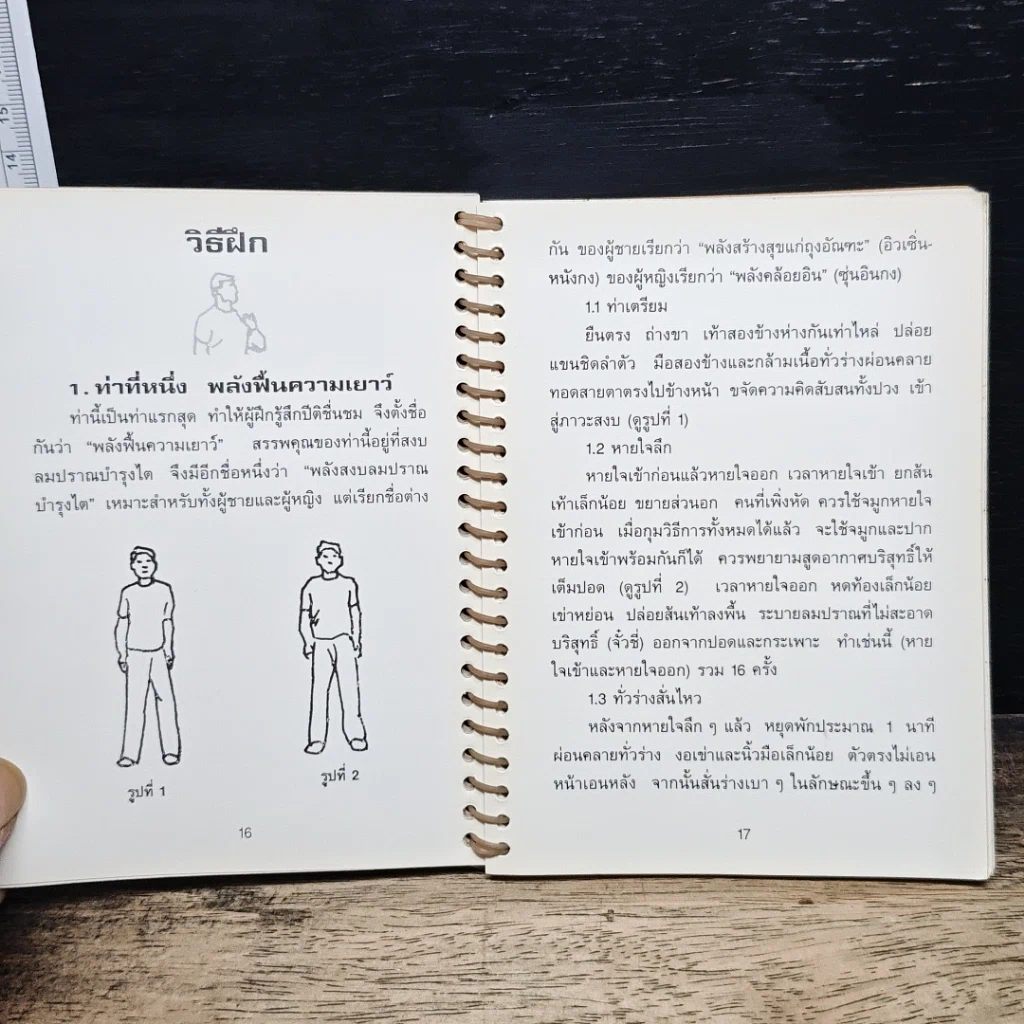 15
14
วิธีฝึก
1. ท่าที่หนึ่ง พลังฟื้นความเยาว์
ท่านี้เป็นท่าแรกสุด ทำให้ผู้ฝึกรู้สึกปีติชื่นชม จึงตั้งชื่อ
กันว่า “พลังฟื้นความเยาว์” สรรพคุณของท่านี้อยู่ที่สงบ
ลมปราณบำรุงไต จึงมีอีกชื่อหนึ่งว่า “พลังสงบลมปราณ
บำรุงไต” เหมาะสำหรับทั้งผู้ชายและผู้หญิง แต่เรียกชื่อต่าง
รูปที่ 1
รูปที่ 2
16
กัน ของผู้ชายเรียกว่า “พลังสร้างสุขแก่ถุงอัณฑะ” (อิวเซิ่น-
หนังกง) ของผู้หญิงเรียกว่า “พลังคล้อยอิน” (ซุ่นอินกง)
1.1 ท่าเตรียม
ยืนตรง ถ่างขา เท้าสองข้างห่างกันเท่าไหล่ ปล่อย
แขนชิดลำตัว มือสองข้างและกล้ามเนื้อทั่วร่างผ่อนคลาย
ทอดสายตาตรงไปข้างหน้า ขจัดความคิดสับสนทั้งปวง เข้า
สู่ภาวะสงบ (ดูรูปที่ 1)
1.2 หายใจลึก
หายใจเข้าก่อนแล้วหายใจออก เวลาหายใจเข้า ยกส้น
เท้าเล็กน้อย ขยายส่วนอก คนที่เพิ่งหัด ควรใช้จมูกหายใจ
เข้าก่อน เมื่อกุมวิธีการทั้งหมดได้แล้ว จะใช้จมูกและปาก
หายใจเข้าพร้อมกันก็ได้ ควรพยายามสูดอากาศบริสุทธิ์ให้
เต็มปอด (ดูรูปที่ 2) เวลาหายใจออก หดท้องเล็กน้อย
เข่าหย่อน ปล่อยส้นเท้าลงพื้น ระบายลมปราณที่ไม่สะอาด
บริสุทธิ์ (จั๋วชี่) ออกจากปอดและกระเพาะ ทำเช่นนี้ (หาย
ใจเข้าและหายใจออก) รวม 16 ครั้ง
1.3 ทั่วร่างสั่นไหว
หลังจากหายใจลึก ๆ แล้ว หยุดพักประมาณ 1 นาที
ผ่อนคลายทั่วร่าง งอเข่าและนิ้วมือเล็กน้อย ตัวตรงไม่เอน
หน้าเอนหลัง จากนั้นสั่นร่างเบา ๆ ในลักษณะขึ้น ๆ ลง ๆ
17